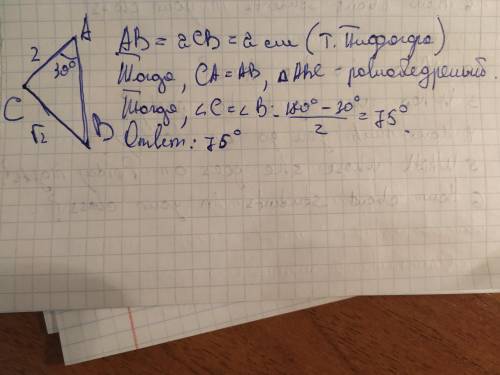 A
2
30°
C
√2
B
AB = 2CB = 2 см (Т. Пифагора)
Тогда, CA = AB, △ABC - равнобедренный.
Тогда, ∠C = ∠B = (180° - 30°)/2 = 75°.
Ответ: 75°